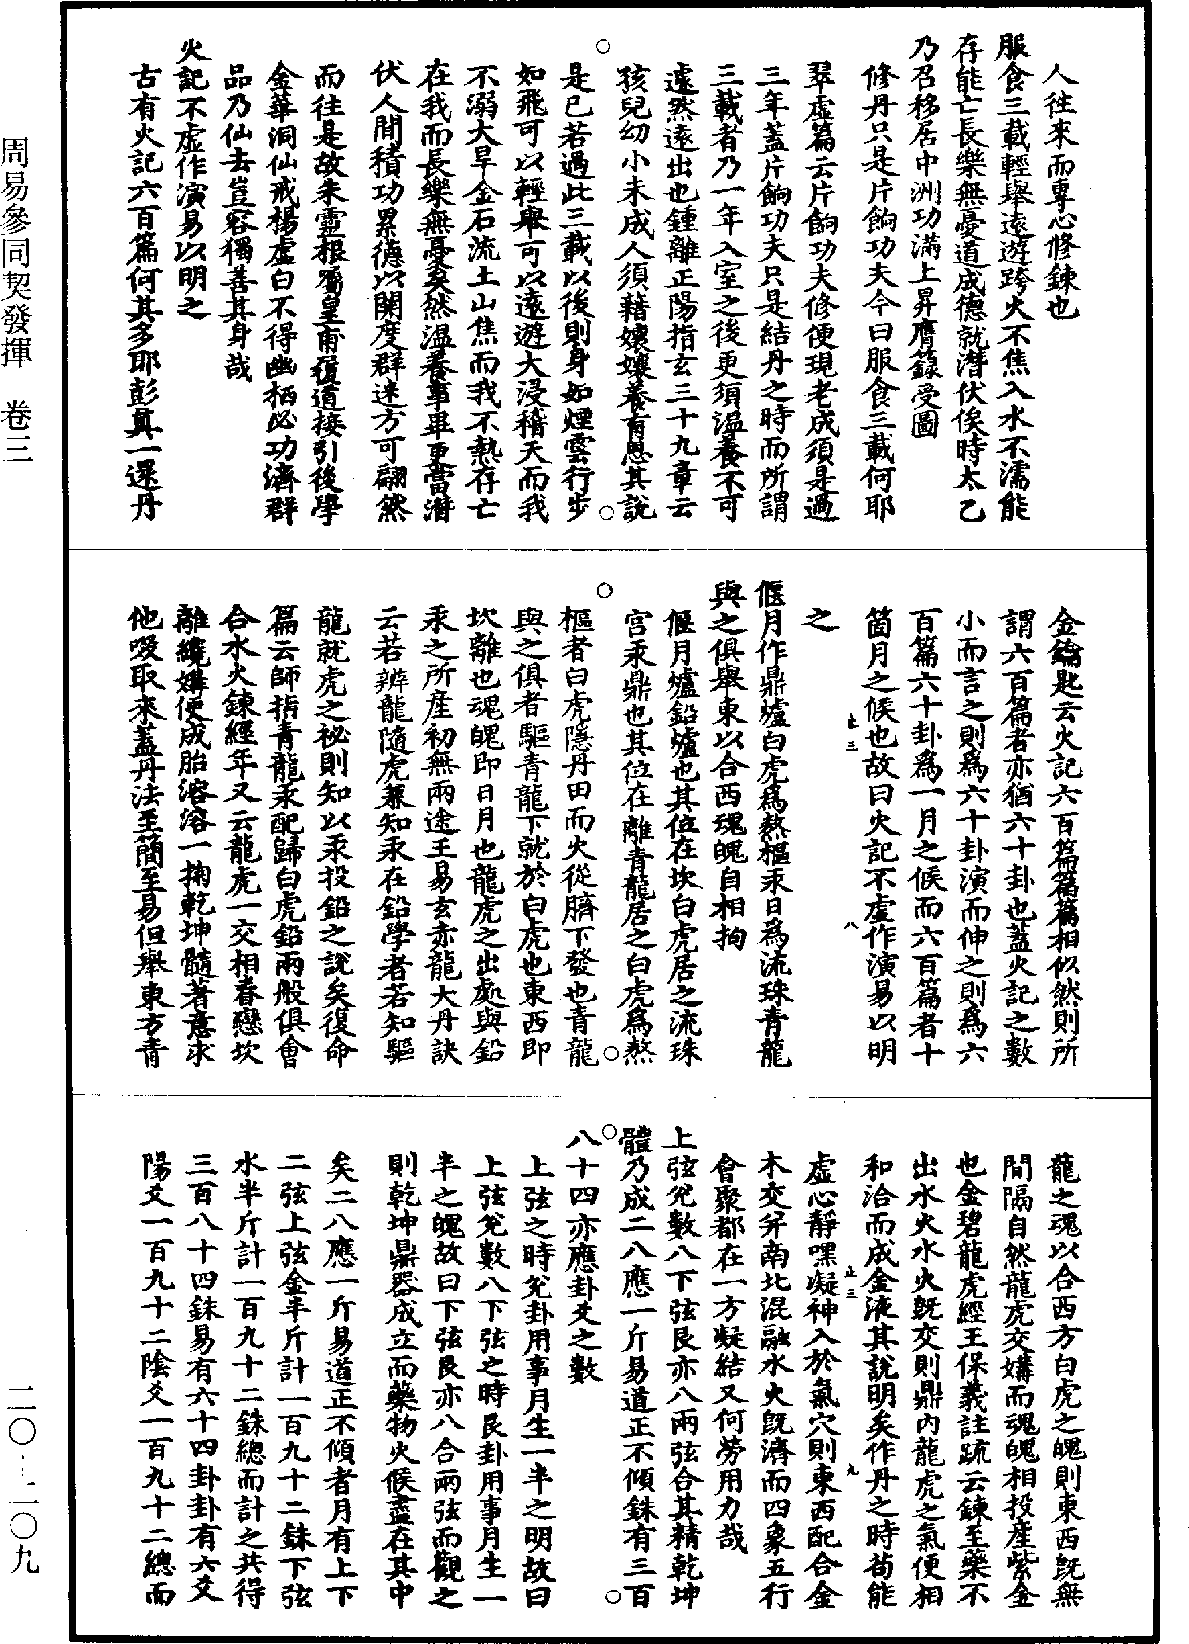 周易參同契發揮　卷三
人往來而專心修鍊也
服食三載輕舉遠遊跨火不焦入水不濡能
存能亡長樂無憂道成德就潛伏俟時太乙
乃召移居中洲功滿上昇膺籙受圖
修丹只是片餉功夫今曰服食三載何耶
翠虛篇云片餉功夫修便現老成須是過
三年蓋片餉功夫只是結丹之時而所謂
三載者乃一年入室之後更須溫養不可
遽然遠出也鍾離正陽指玄三十九章云
孩兒幼小未成人須藉孃孃養育恩其說
是已若過此三載以後則身如煙雲行步
如飛可以輕舉可以遠遊大浸稽天而我
不溺大旱金石流土山焦而我不熱存亡
在我而長樂無憂矣然溫養事畢更當潛
伏人間積功累德以開度群迷方可翩然
而往是故朱靈根囑皇甫履道接引後學
金華洞仙戒楊虛白不得幽栖必功濟群
品乃仙去豈容獨善其身哉
火記不虛作演易以明之
古有火記六百篇何其多耶彭真一還丹
金鑰匙云火記六百篇篇篇相似然則所
謂六百篇者亦猶六十卦也蓋火記之數
小而言之則為六十卦演而伸之則為六
百篇六十卦為一月之候而六百篇者十
箇月之候也故曰火記不虛作演易以明
之
偃月作鼎爐白虎為熬樞汞日為流珠青龍
與之俱舉東以合西魂魄自相拘
偃月爐鉛爐也其位在坎白虎居之流珠
宮汞鼎也其位在離青龍居之白虎為熬
樞者白虎隱丹田而火從臍下發也青龍
與之俱者驅青龍下就於白虎也東西即
坎離也魂魄即日月也龍虎之出處與鉛
汞之所產初無兩途王易玄赤龍大丹訣
云若辨龍隨虎兼知汞在鉛學者若知驅
龍就虎之祕則知以汞投鉛之說矣復命
篇云師指青龍汞配歸白虎鉛兩般俱會
合水火鍊經年又云龍虎一交相眷戀坎
離纔媾便成胎溶溶一掬乾坤髓著意求
他吸取來蓋丹法至簡至易但舉東方青
龍之魂以合西方白虎之魄則東西既無
間隔自然龍虎交媾而魂魄相投產紫金
也金碧龍虎經王保義註疏云鍊至藥不
出水火水火既交則鼎內龍虎之氣便相
和洽而成金液其說明矣作丹之時苟能
虛心靜嘿凝神入於氣穴則東西配合金
木交并南北混融水火既濟而四象五行
會聚都在一方凝結又何勞用力哉
上弦兌數八下弦艮亦八兩弦合其精乾坤
體乃成二八應一斤易道正不傾銖有三百
八十四亦應卦爻之數
上弦之時兌卦用事月生一半之明故曰
上弦兌數八下弦之時艮卦用事月生一
半之魄故曰下弦艮亦八合兩弦而觀之
則乾坤鼎器成立而藥物火候盡在其中
矣二八應一斤易道正不傾者月有上下
二弦上弦金半斤計一百九十二銖下弦
水半斤計一百九十二銖總而計之共得
三百八十四銖易有六十四卦卦有六爻
陽爻一百九十二陰爻一百九十二總而
二〇－二〇九